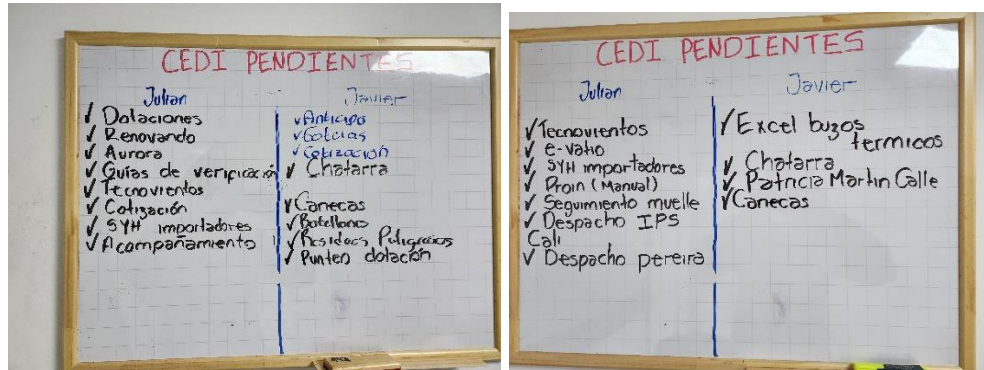 CEDI PENDIENTES
Julian
✓ Dotaciones
✓ Renovando
✓ Aurora
✓ Guias de verificación
✓ Tecnovientos
✓ Cotización
✓ SYH importadores
✓ Acompañamiento
Javier
✓ Anticipo
✓ Cotización
✓ Chatarra
✓ Canecas
✓ Botellones
✓ Residuos Peligrosos
✓ Punteo dotación
CEDI PENDIENTES
Julian
✓ Tecnovientos
✓ e-vatio
✓ SYH importadores
✓ Proin (Manual)
✓ Seguimiento muelle
✓ Despacho IPS
Cali
✓ Despacho pereira
Javier
✓ Excel buzos
termicos
✓ Chatarra
✓ Patricia Martin Calle
✓ Canecas